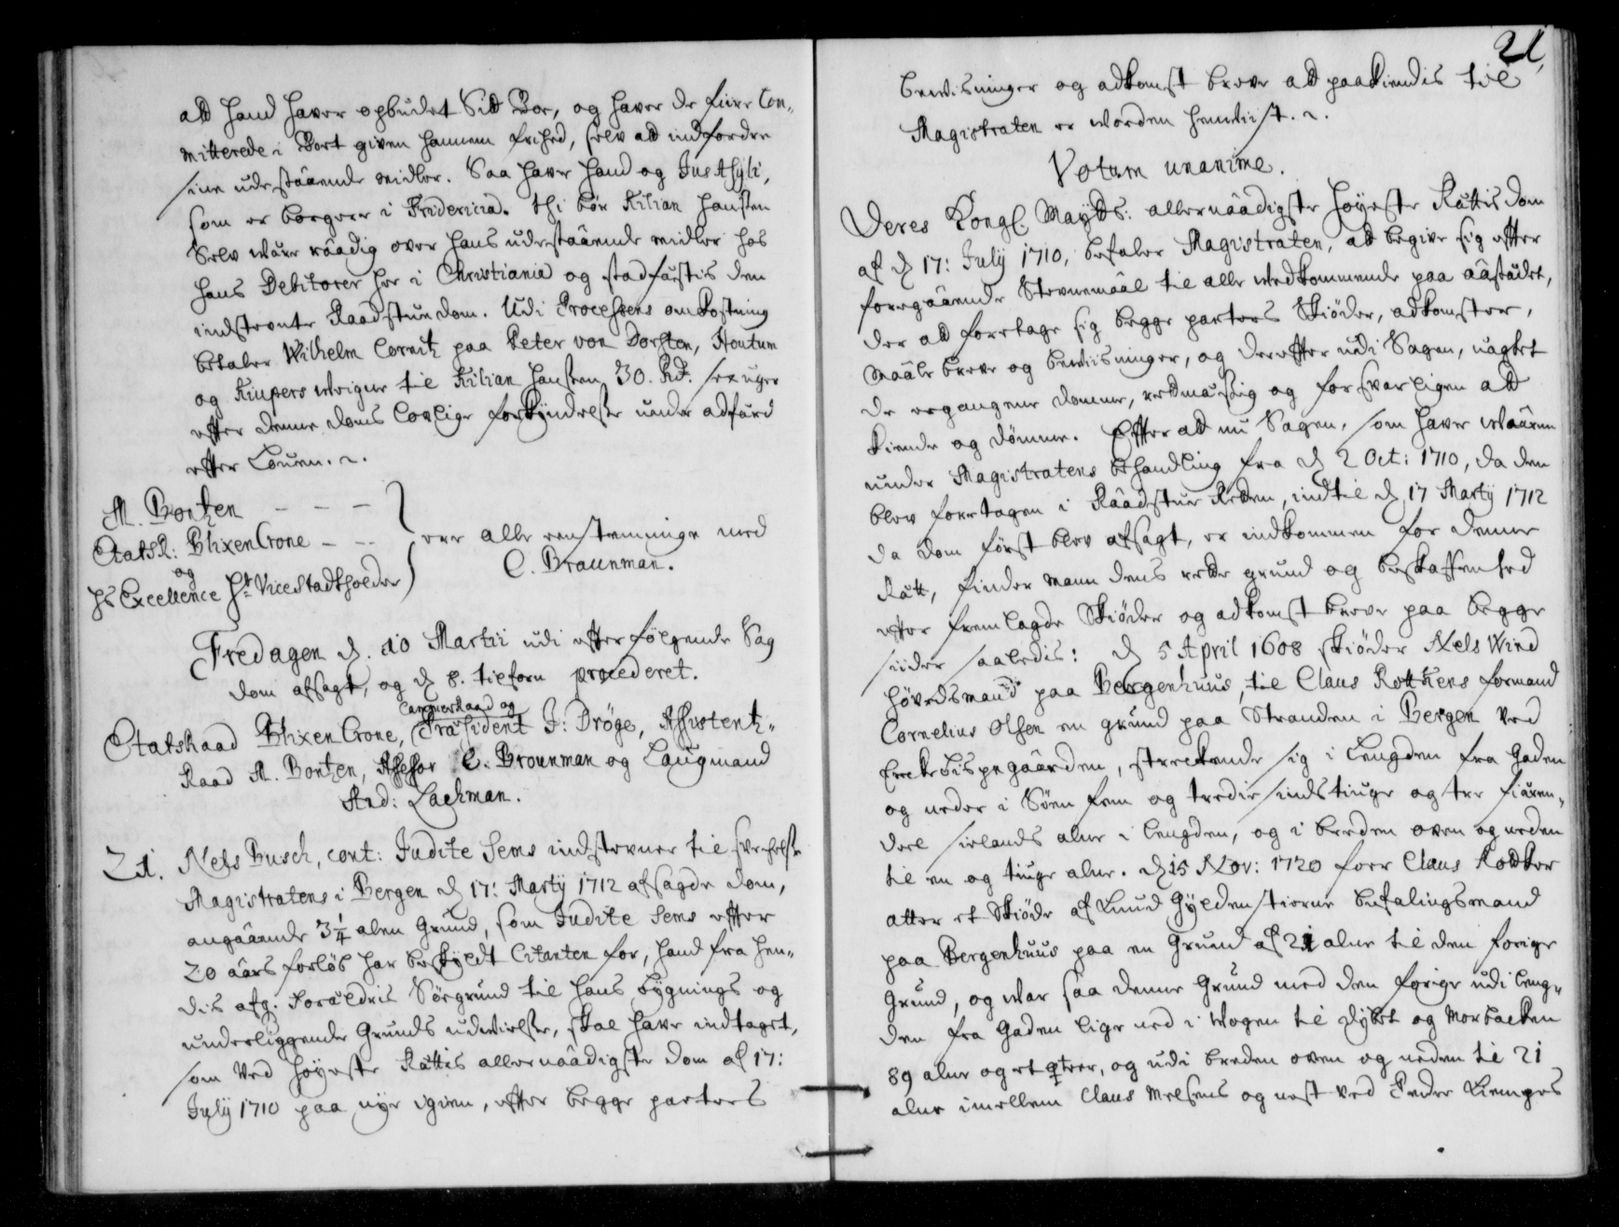 at hand haver opbudet Sit Boe, og haver de fiire Com-
mitterede i Boet given hannem frihed, selv at indfordre
sine udestaaende midler. Saa haver hand og Jus Asyli,
som er borger i Fridericia. thi bør Kilian Hansen
Selv være raadig over hans udestaaende midler hos
hans Debitorer her i Christiania og stadfæstis den
indstevnte Raadstue dom. Udi Processens omkostning
betaler Wilhelm Cornitz paa Peter von Dorsten, Houtum
og Kiupers weigne til Kilian Hansen 30. Rd. sex uger
efter denne doms lovlige forkyndelse under adfærd
efter Louen.
M. Bontzen - - -
Etatsr: Blixencrone - - ere alle eenstemmige med
og C. Braunman.
Hs Excellence Hr Vice Stadtholder
Fredagen d. 10 Martii udi efterfølgende Sag
dom afsagt, og d 8. tilforn procederet.
Cammerraad og
Etatsraad Blixencrone, Præsident J: Dröge, Assistentz-
Raad M. Bontzen, Assessor C. Brounman og Laugmand
And: Lachman.
21. Nels Busch, cont: Judite Sems indstevner til svechelse
Magistratens i Bergen d 17: Martij 1712 afsagde dom,
angaaende 3 1/4 alen Grund, som Judite Sems efter
20 aars forløb har beskyldt Citanten for, hand fra hen-
dis afg. Forældris Søegrund til hans bygnings og
underliggende Grunds udvielse, skal have indtaget,
som ved Høyeste Rættis allernaadigste dom af 17:
Julij 1710 paa nye igien, efter begge parters
21,
beviisninger og adkomst breve at paakiendis til
Magistraten er worden henviist.
Votum unanime.
Deres Kongl Mayts: allernaadigste Høyeste Rættis dom
af d 17: July 1710, befaler Magistraten, at begive sig efter
foregaaende Stevnemaal til alle wedkommende paa aastædet,
der at foretage sig begge parters Skiøder, adkomster,
Maale breve og beviisninger, og derefter udi Sagen, uagtet
de ergangene domme, retmæssig og forsvarligen at
kiende og dømme. Efter at nu Sagen, som haver waaren
under Magistratens behandling fra d 2 Oct: 1710, da den
blev foretagen i Raadstue Retten, indtil d 17 Martij 1712
da dom først blev afsagt, er indkommen for denne
Rætt, finder mann dens rette grund og beskaffenhed
efter fremlagde Skiøder og adkomst breve paa begge
siider saaledis: d 5 April 1608 skiøder Nels Wind
høvedsmand paa Bergenhuus, til Claus Rottkens formand
Cornelius Olsen en grund paa Stranden i Bergen ved
Erckebispegaarden, streckende sig i Lengden fra Gaden
og neder i Søen fem og tredie sindstiuge og tre fiæren-
deel sielands alne i lengden, og i breden oven og neden
til en og tiuge alne. d 15 Nov: 1720 foer Claus Rottker
atter et Skiøde af Knud Gyldenstierne befalingsmand
paa Bergenhuus paa en Grund af 21 alne til den forige
Grund, og war saa denne Grund med den forige udi leng-
den fra Gaden lige ned i Wogen til dybet og Morbacken
89 alne og et qteer, og udi breden oven og neden til 21
alne imellem Claus Melsens og nest ved Peder Kiempes